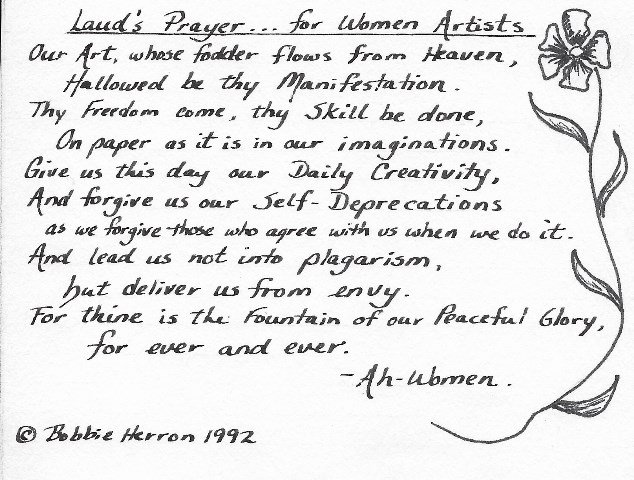 Laud's Prayer... for Women Artists
Our Art, whose fodder flows from Heaven,
Hallowed be thy Manifestation.
Thy Freedom come, thy Skill be done,
On paper as it is in our imaginations.
Give us this day our Daily Creativity,
And forgive us our Self-Deprecations
as we forgive those who agree with us when we do it.
And lead us not into plagarism,
but deliver us from envy.
For thine is the Fountain of our Peaceful Glory,
for ever and ever.
-Ah-Women.
© Bobbie Herron 1992